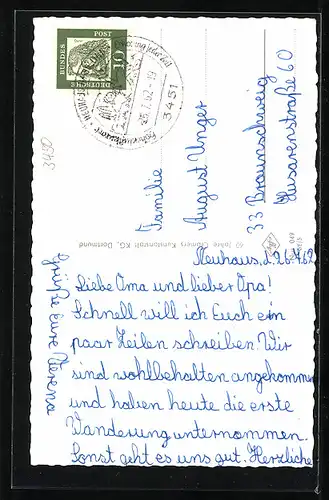 Neuhaus, d. 26.4.62
Liebe Oma und lieber Opa!
Schnell will ich Euch ein
paar Zeilen schreiben. Wir
sind wohlbehalten angekommen
und haben heute die erste
Wanderung unternommen.
Sonst geht es uns gut. Herzliche
Grüße Eure Verena
Familie
August Unger
33 Braunschweig
Husarenstraße 60
DEUTSCHE
BUNDES
POST
10
3451
60 Jahre Cramers Kunstanstalt KG, Dortmund